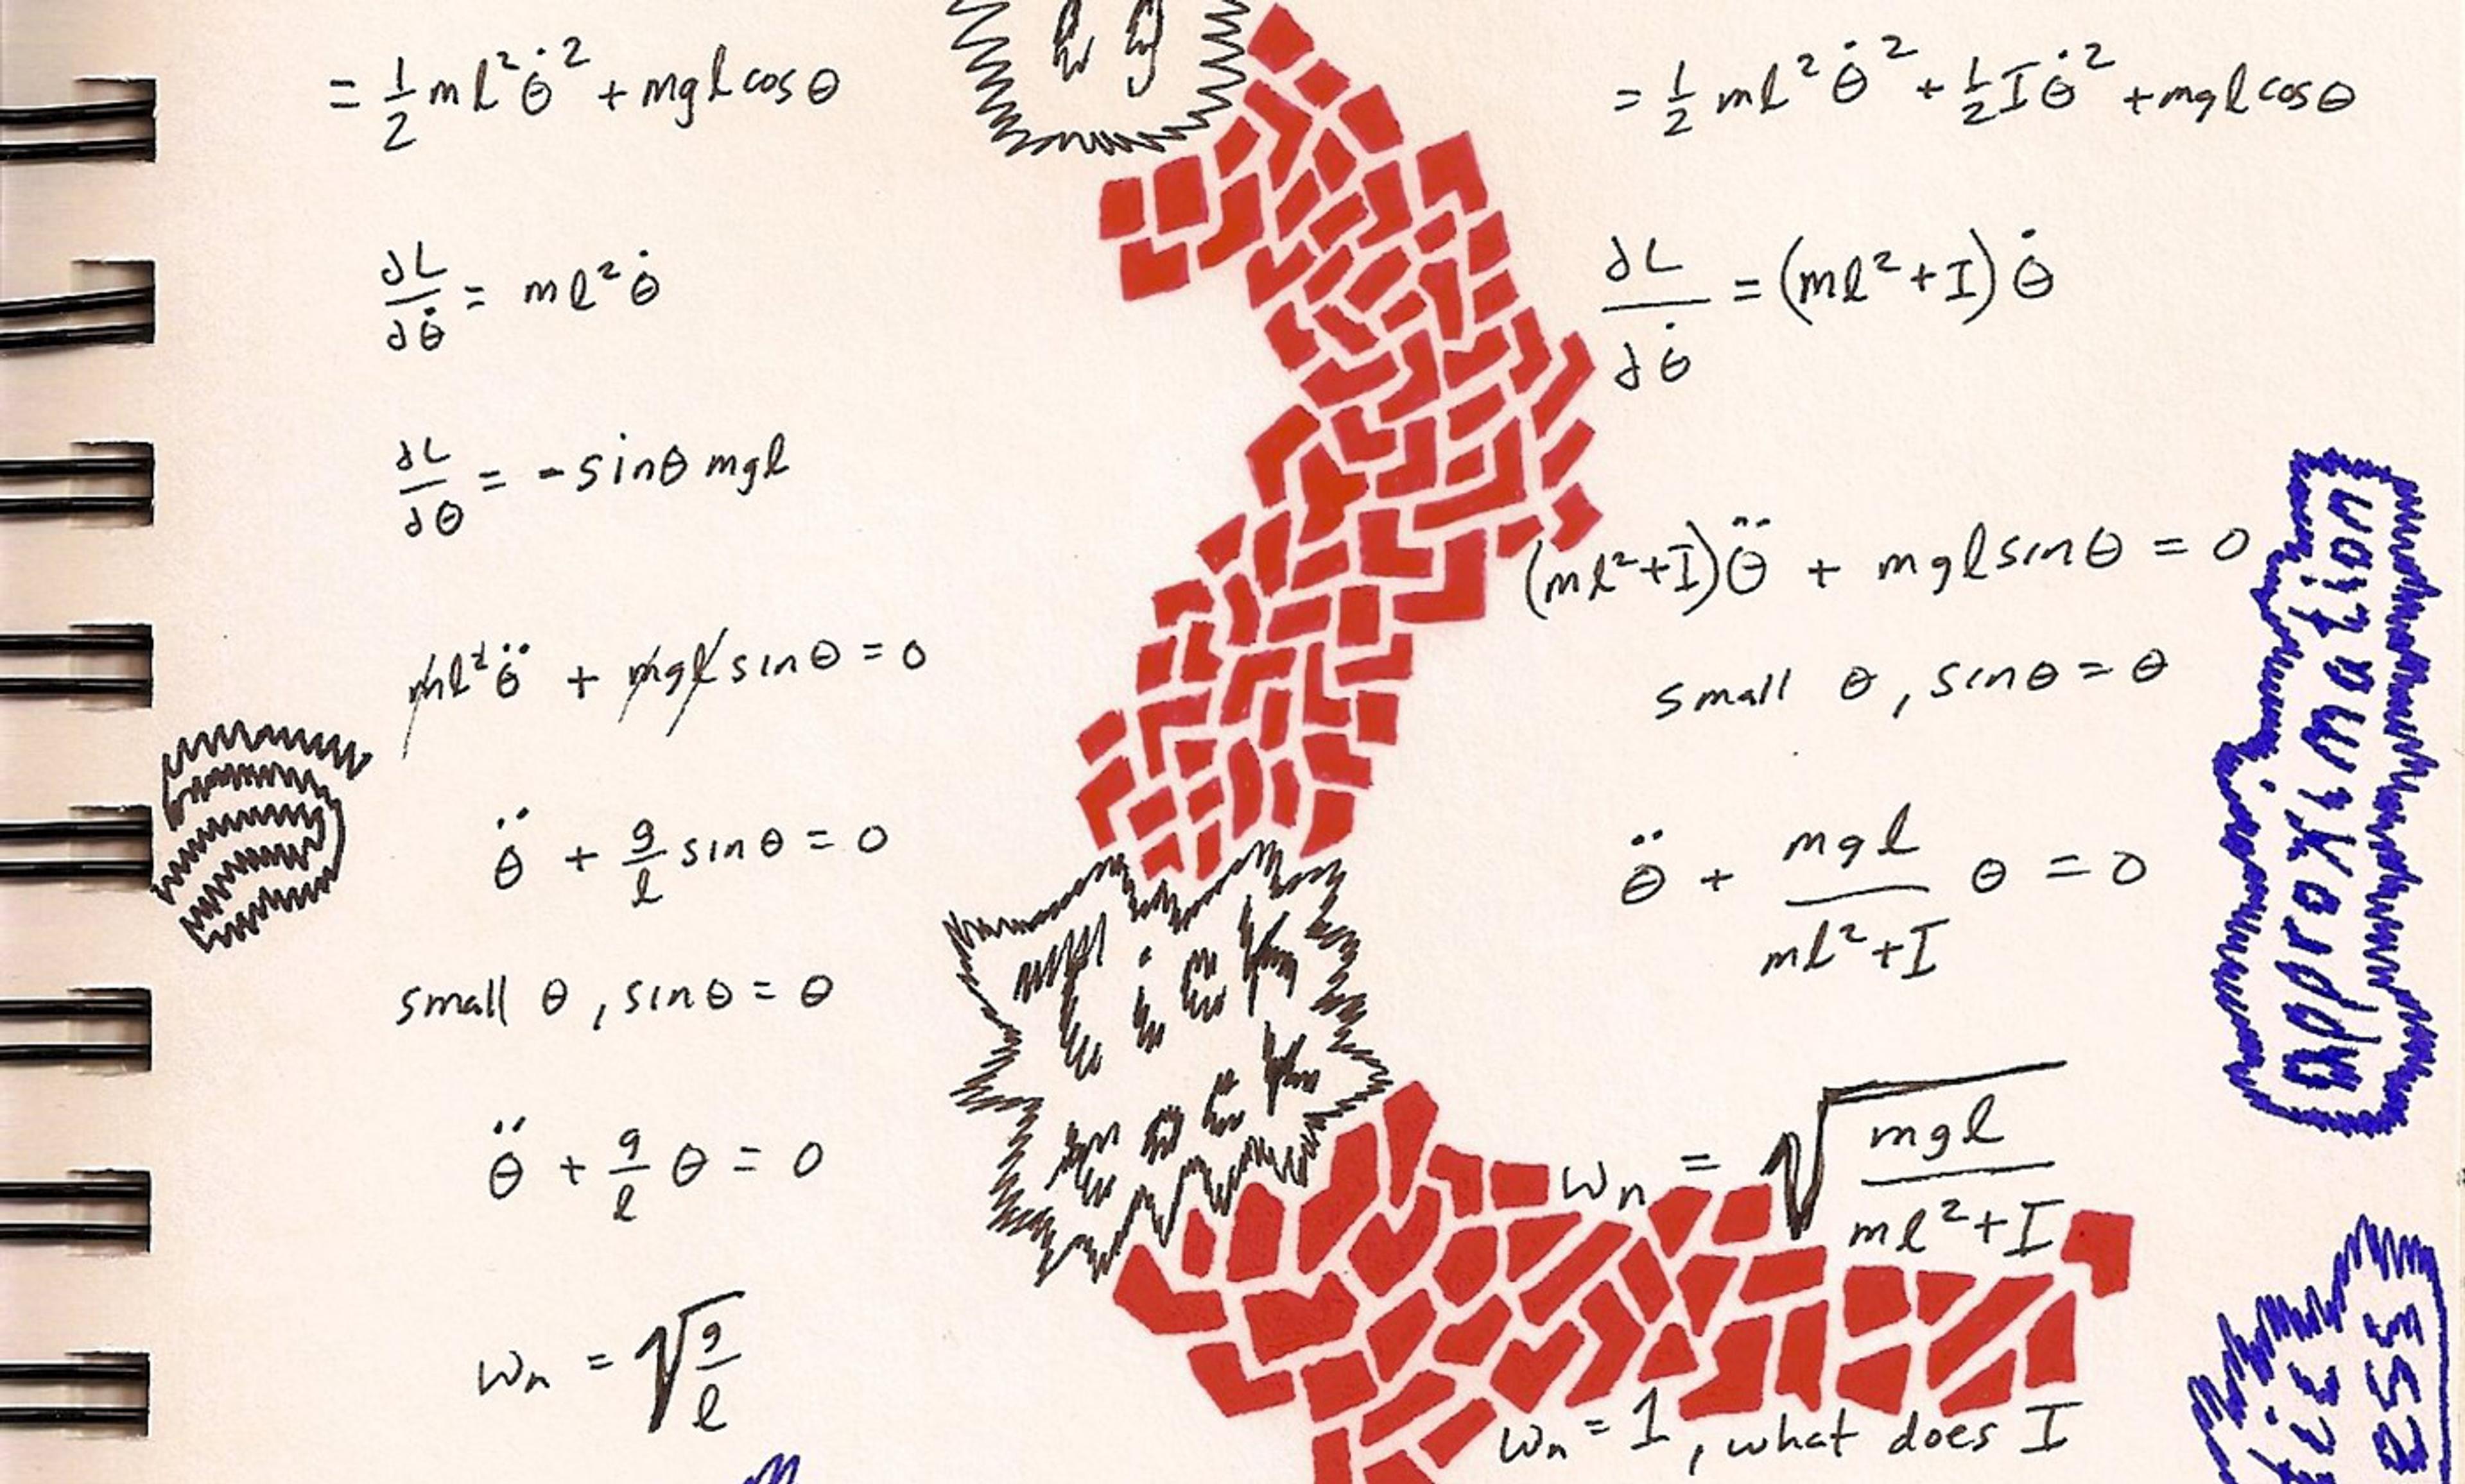 = 1/2 ml²θ̇² + mgl cosθ
∂L/∂θ̇ = ml²θ̇
∂L/∂θ = -sinθ mgl
ml²θ̈ + mgl sinθ = 0
θ̈ + g/l sinθ = 0
small θ, sinθ = θ
θ̈ + g/l θ = 0
ωn = √(g/l)
Tick
Tock
= 1/2 ml²θ̇² + 1/2 Iθ̇² + mgl cosθ
∂L/∂θ̇ = (ml²+I)θ̇
(ml²+I)θ̈ + mgl sinθ = 0
small θ, sinθ = θ
θ̈ + mgl/(ml²+I) θ = 0
ωn = √(mgl/(ml²+I))
ωn = 1, what does I
approximation